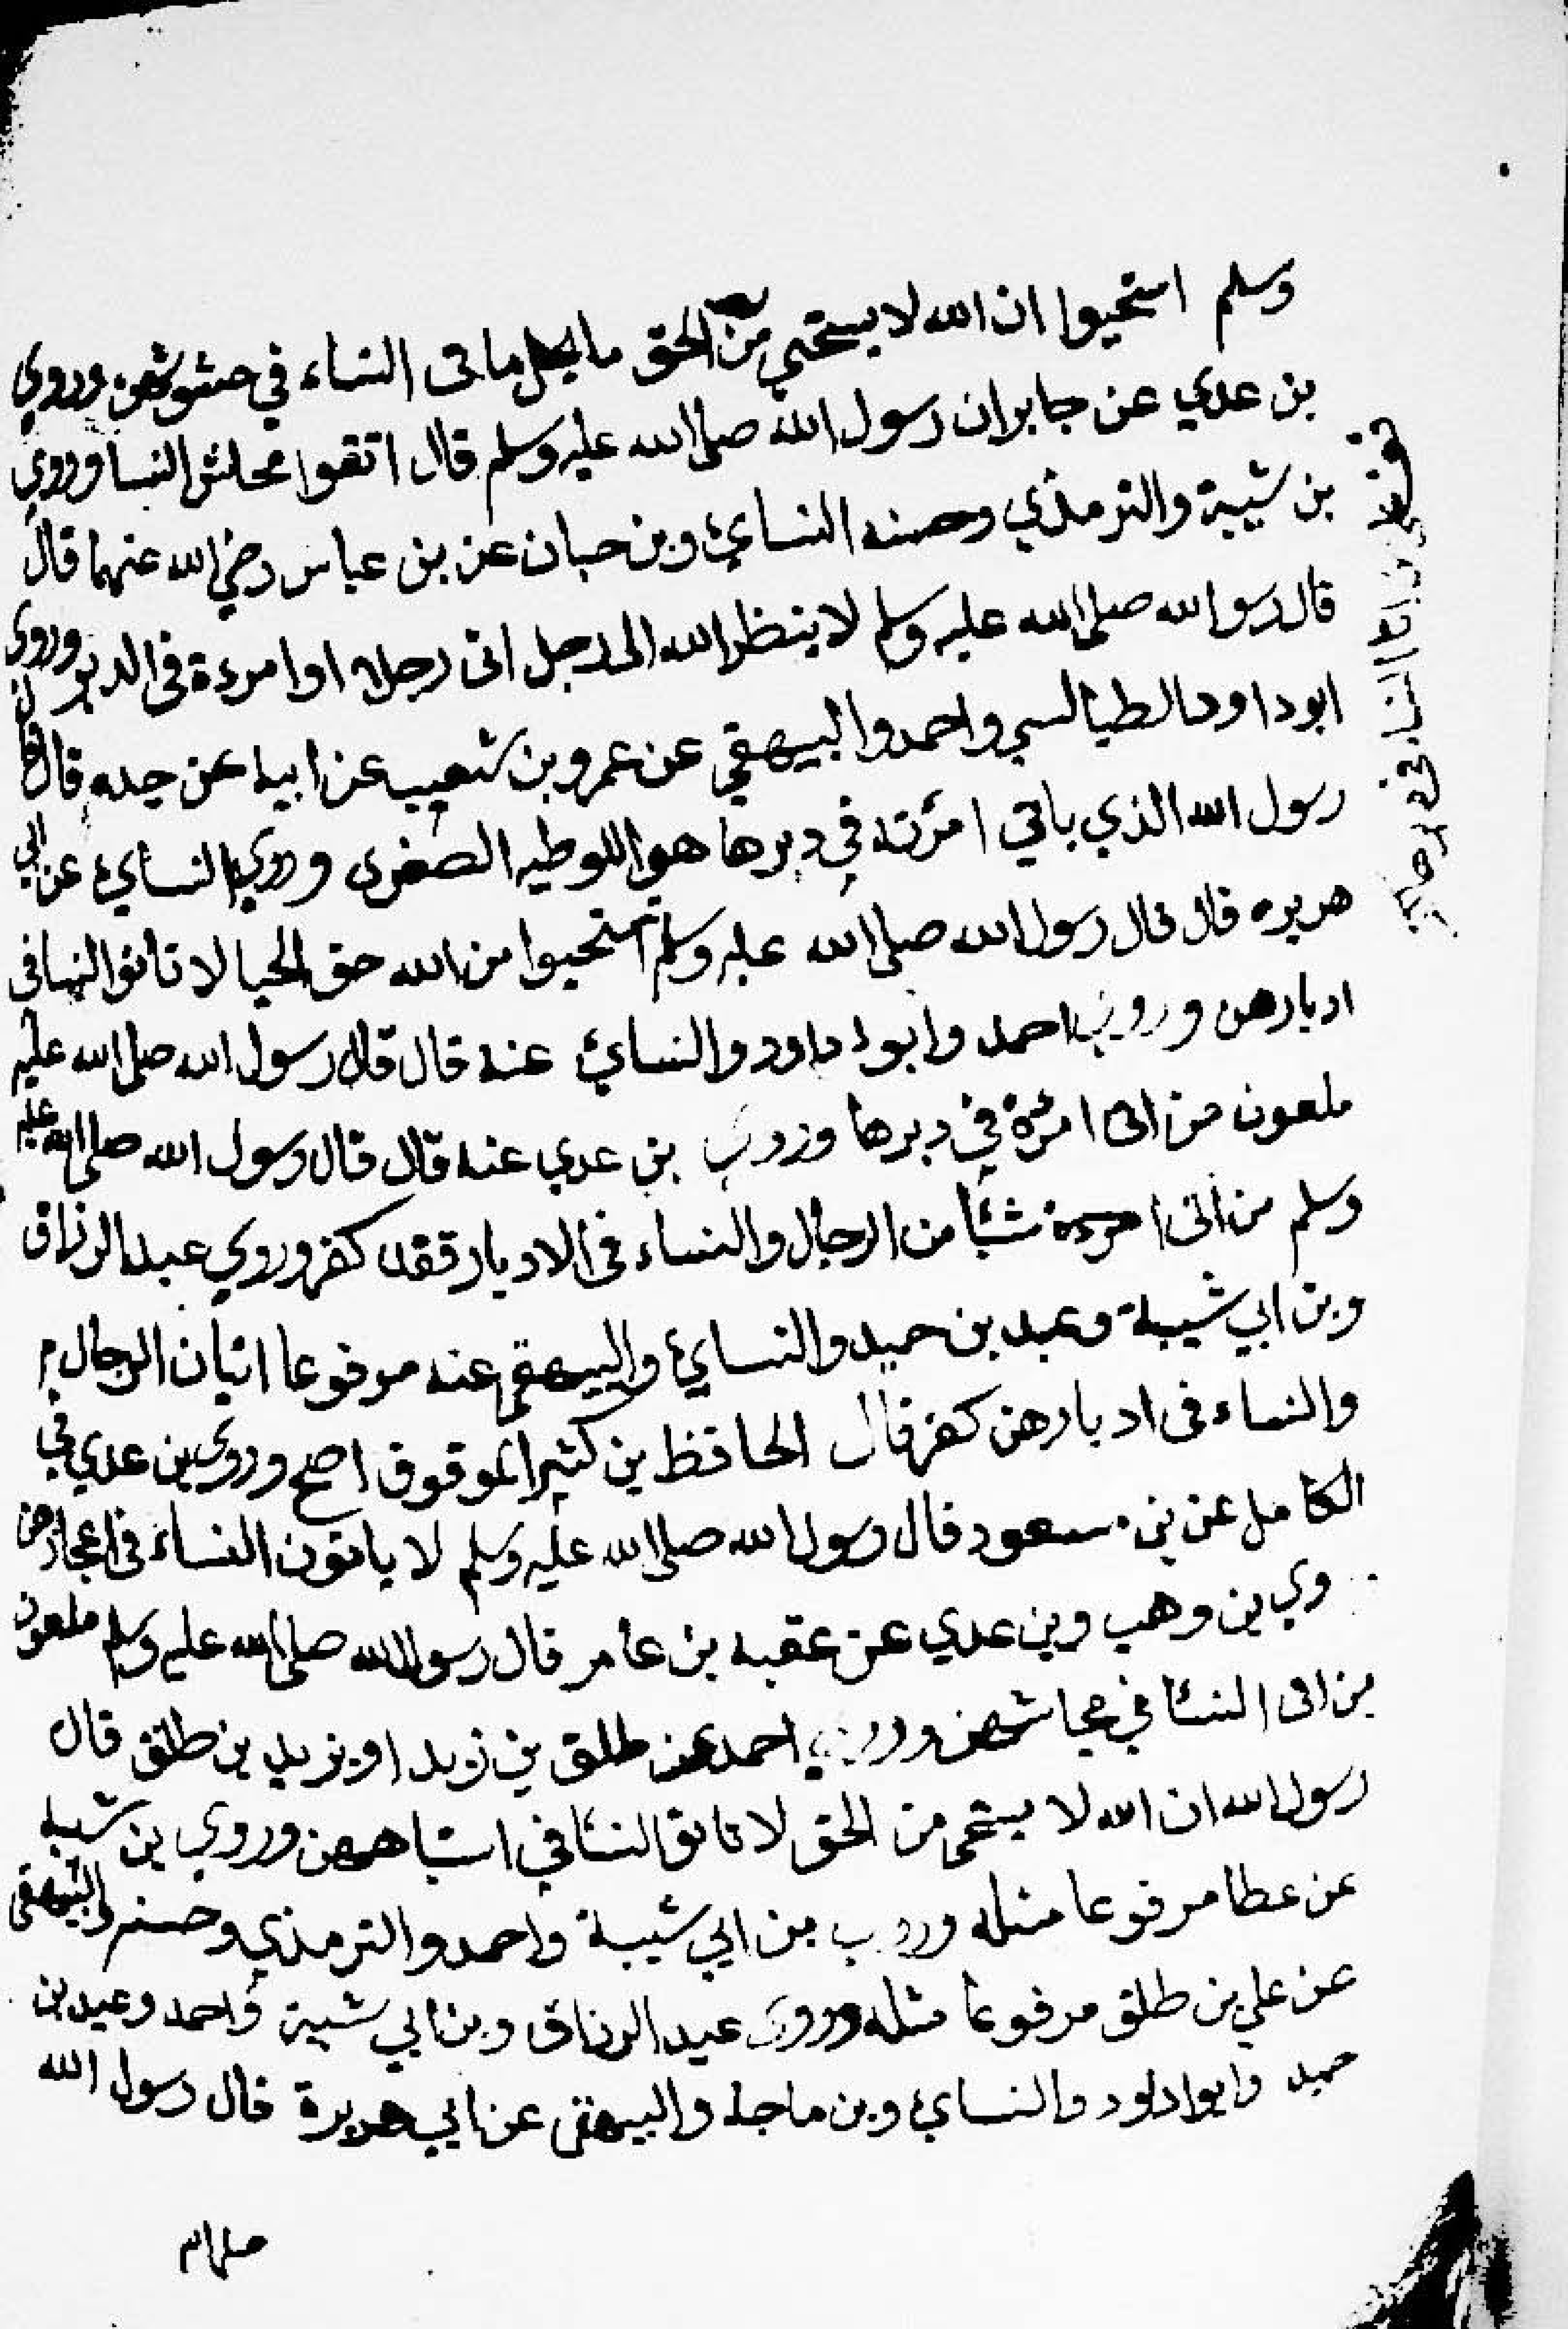 وسلم استحيوا ان الله لا يستحي من الحق ما يحل ماتى النساء في حشوشهن وروي
بن عدي عن جابر ان رسول الله صلى الله عليه وسلم قال اتقوا محاش النسا وروي
بن شيبة والترمذي وحسنه النسائي وبن حبان عن بن عباس رضي الله عنهما قال
قال رسو الله صلى الله عليه وسلم لا ينظر الله الى رجل اتى رجلا او امرءة في الدبر وروى
ابو داود الطيالسي واحمد والبيهقي عن عمرو بن شعيب عن ابيه عن جده قال
رسول الله الذي ياتي امرئته في دبرها هي اللوطيه الصغرى وروي النسائي عن ابي
هريره قال قال رسول الله صلى الله عليه وسلم استحيوا من الله حق الحيا لا تاتوا النسا في
ادبارهن وروي احمد وابو داود والنسائي عنه قال قال رسول الله صلى الله عليه
ملعون من اتى امرئة في دبرها وروي بن عدي عنه قال قال رسول الله صلى الله عليه
وسلم من اتى شيئا من الرجال والنساء في الادبار فقد كفر وروي عبد الرزاق
وبن ابي شيبة وعبد بن حميد والنسائي والبيهقي عنه مرفوعا اتيان الرجال
والنساء في ادبارهن كفر قال الحافظ بن كثير الموقوف اصح وروى بن عدي في
الكامل عن بن مسعود قال رسول الله صلى الله عليه وسلم لا ياتون النساء في اعجازهن
وي بن وهب وبن عدي عن عقبه بن عامر قال رسول الله صلى الله عليه وسلم ملعون
من اتى النسا في محاشهن وروي احمد عن طلق بن زيد او يزيد بن طلق قال
رسول الله ان الله لا يستحى من الحق لا تاتو النسا في استاههن وروي بن شيبه
عن عطا مرفوعا مثله وروي بن ابي شيبة واحمد والترمذي وحسنه والبيهقي
عن علي بن طلق مرفوعا مثله وروي عبد الرزاق وبن ابي شيبة واحمد وعبد بن
حميد وابو داود والنسائي وبن ماجه والبيهقي عن ابي هريرة قال رسول الله